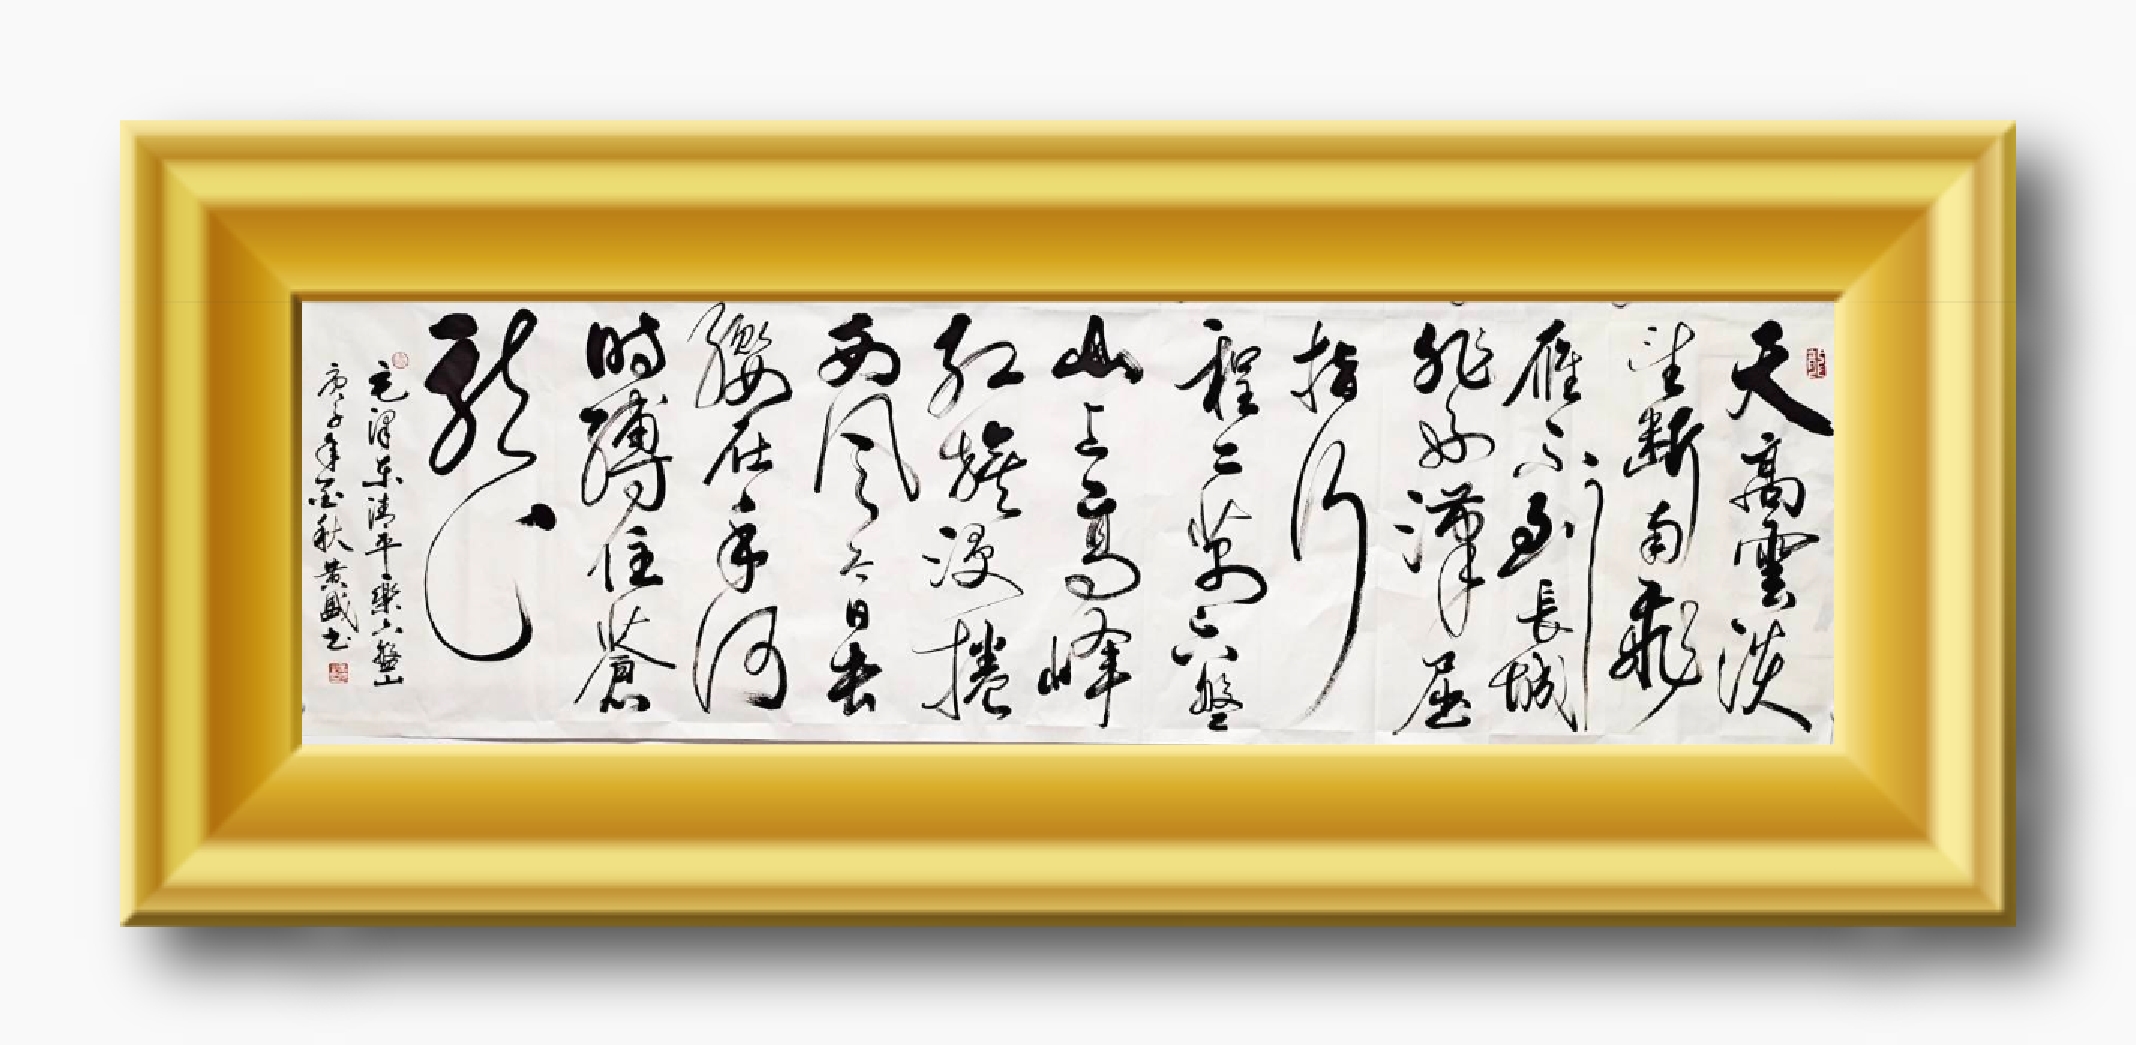 天高雲淡
望斷南飛
雁不到長城
非好漢屈
指行
程二萬六盤
山上高峰
红旗漫捲
西风今日长
纓在手何
時縛住蒼
龍
毛泽东清平樂六盤山
庚子年金秋黄盛书